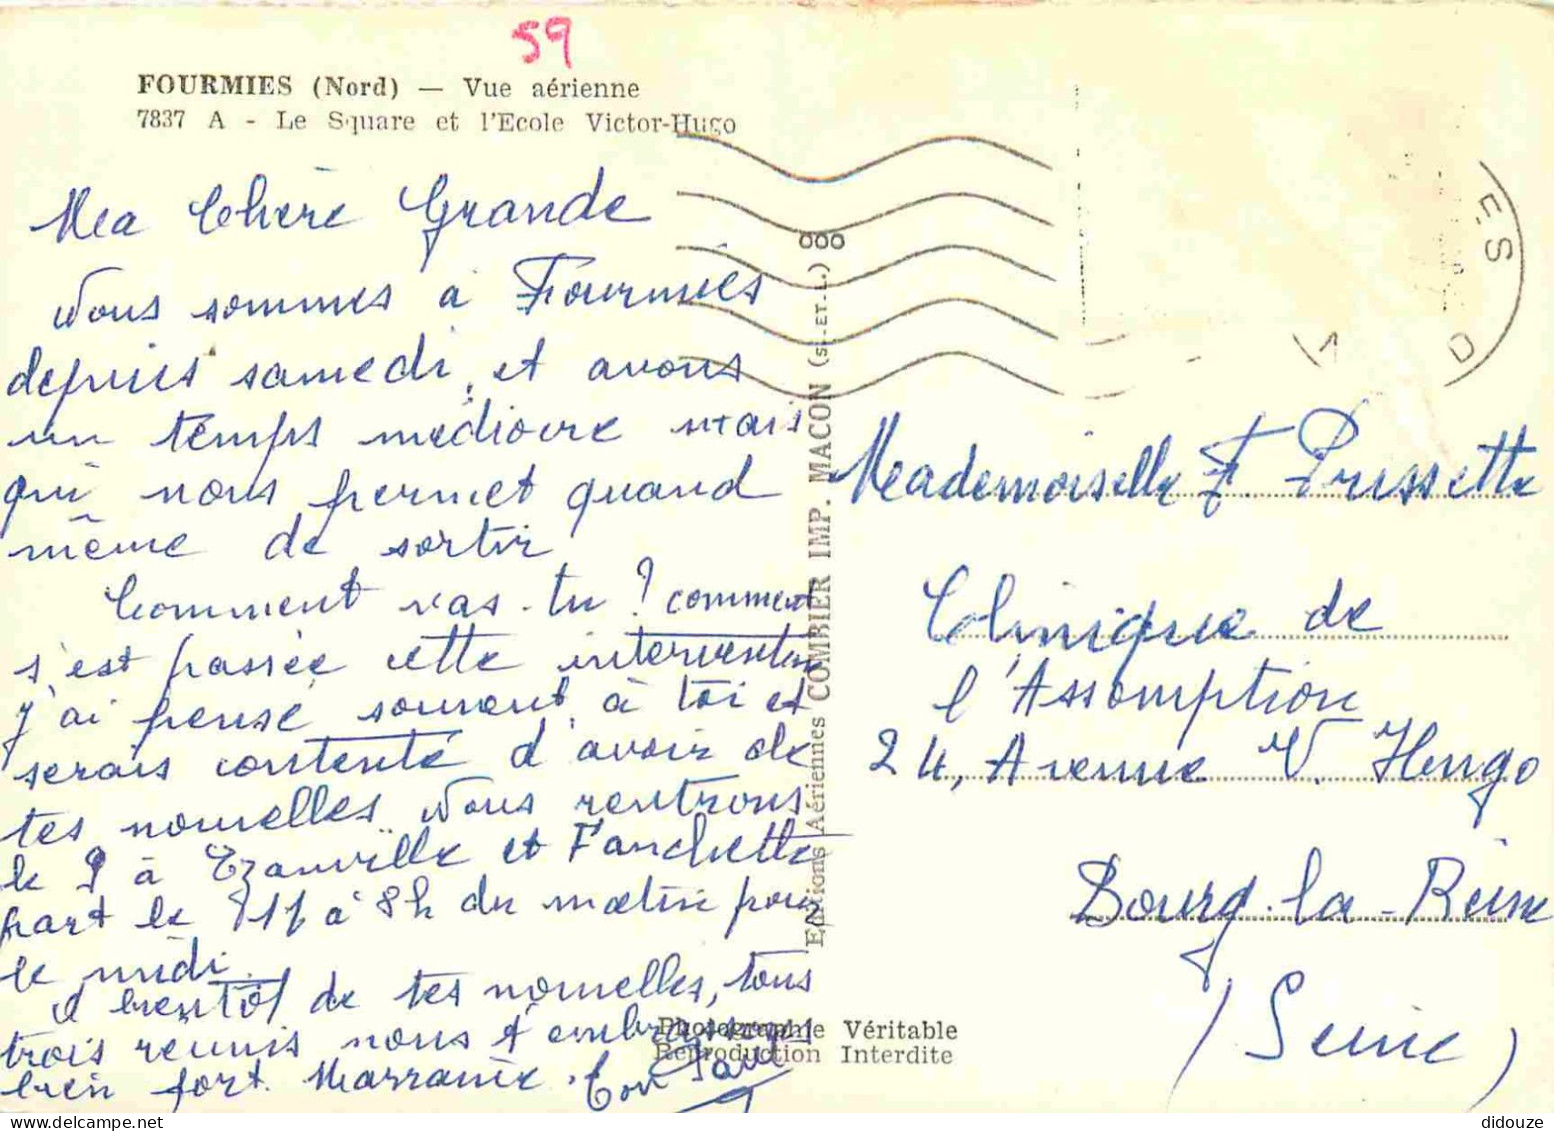 59
FOURMIES (Nord) — Vue aérienne
7837 A - Le Square et l'Ecole Victor-Hugo
Ma Chère Grande
Nous sommes à Fourmies
depuis samedi, et avons
un temps médiocre mais
qui nous permet quand
même de sortir
Comment vas-tu ? comment
s'est passée cette intervention
j'ai pensé souvent à toi et
serais contente d'avoir de
tes nouvelles Nous rentrons
le 9 à Ezanville et Fanchette
part le 11 à 8h du matin pour
le midi.
A bientôt de tes nouvelles, tous
trois réunis nous t'embrassons
bien fort. Marraine. Ton Paul
Editions Aériennes COMBIER IMP. MACON (S.-ET-L.) 000
Photographie Véritable
Reproduction Interdite
ES
D
Mademoiselle F. Prissette
Clinique de
l'Assomption
24, Avenue V. Hugo
Bourg-la-Reine
(Seine)
didouze